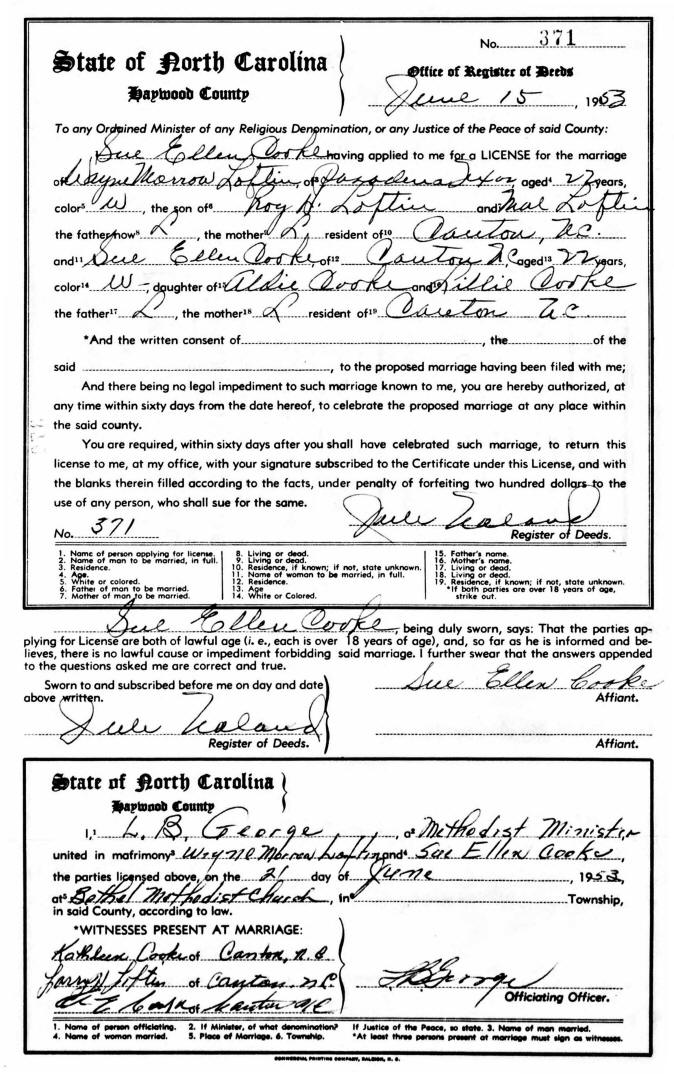 No. 371
State of North Carolina
Office of Register of Deeds
Haywood County
June 15, 1953
To any Ordained Minister of any Religious Denomination, or any Justice of the Peace of said County:
Sue Ellen Cooke having applied to me for a LICENSE for the marriage
of Wayne Morrow Loftin, of³ Pasadena Texas aged⁴ 22 years,
color⁵ W, the son of⁶ Roy H. Loftin and⁷ Mae Loftin
the father now⁸ L, the mother⁹ L, resident of¹⁰ Canton, N.C.
and¹¹ Sue Ellen Cooke, of¹² Canton N.C, aged¹³ 22 years,
color¹⁴ W daughter of¹⁵ Aldie Cooke and¹⁶ Lillie Cooke
the father¹⁷ L, the mother¹⁸ L resident of¹⁹ Canton N.C.
*And the written consent of, the of the
said, to the proposed marriage having been filed with me;
And there being no legal impediment to such marriage known to me, you are hereby authorized, at
any time within sixty days from the date hereof, to celebrate the proposed marriage at any place within
the said county.
You are required, within sixty days after you shall have celebrated such marriage, to return this
license to me, at my office, with your signature subscribed to the Certificate under this License, and with
the blanks therein filled according to the facts, under penalty of forfeiting two hundred dollars to the
use of any person, who shall sue for the same.
Jule Noland
No. 371 Register of Deeds.
1. Name of person applying for license.
2. Name of man to be married, in full.
3. Residence.
4. Age.
5. White or colored.
6. Father of man to be married.
7. Mother of man to be married.
8. Living or dead.
9. Living or dead.
10. Residence, if known; if not, state unknown.
11. Name of woman to be married, in full.
12. Residence.
13. Age
14. White or Colored.
15. Father's name.
16. Mother's name.
17. Living or dead.
18. Living or dead.
19. Residence, if known; if not, state unknown.
*If both parties are over 18 years of age,
strike out.
Sue Ellen Cooke, being duly sworn, says: That the parties ap-
plying for License are both of lawful age (i. e., each is over 18 years of age), and, so far as he is informed and be-
lieves, there is no lawful cause or impediment forbidding said marriage. I further swear that the answers appended
to the questions asked me are correct and true.
Sworn to and subscribed before me on day and date
above written.
Sue Ellen Cooke
Affiant.
Jule Noland
Register of Deeds.
Affiant.
State of North Carolina
Haywood County
I,¹ L. B. George, a² Methodist Minister
united in matrimony³ Wayne Morrow Loftin and⁴ Sue Ellen Cooke,
the parties licensed above, on the 21 day of June, 1953,
at⁵ Bethel Methodist Church, in⁶ Township,
in said County, according to law.
*WITNESSES PRESENT AT MARRIAGE:
Kathleen Cooke of Canton, N.C
Larry Loftin of Canton N.C.
of Canton N.C
L B George
Officiating Officer.
1. Name of person officiating. 2. If Minister, of what denomination? If Justice of the Peace, so state. 3. Name of man married.
4. Name of woman married. 5. Place of Marriage. 6. Township. *At least three persons present at marriage must sign as witnesses.
COMMERCIAL PRINTING COMPANY, RALEIGH, N. C.